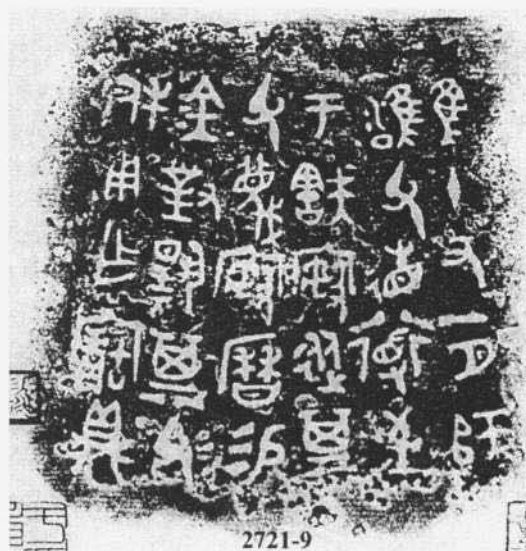 隹十又一月師
雝父省道至
于㝬從其
父蔑曆易
金對揚其父
休用乍寶鼎
2721-9